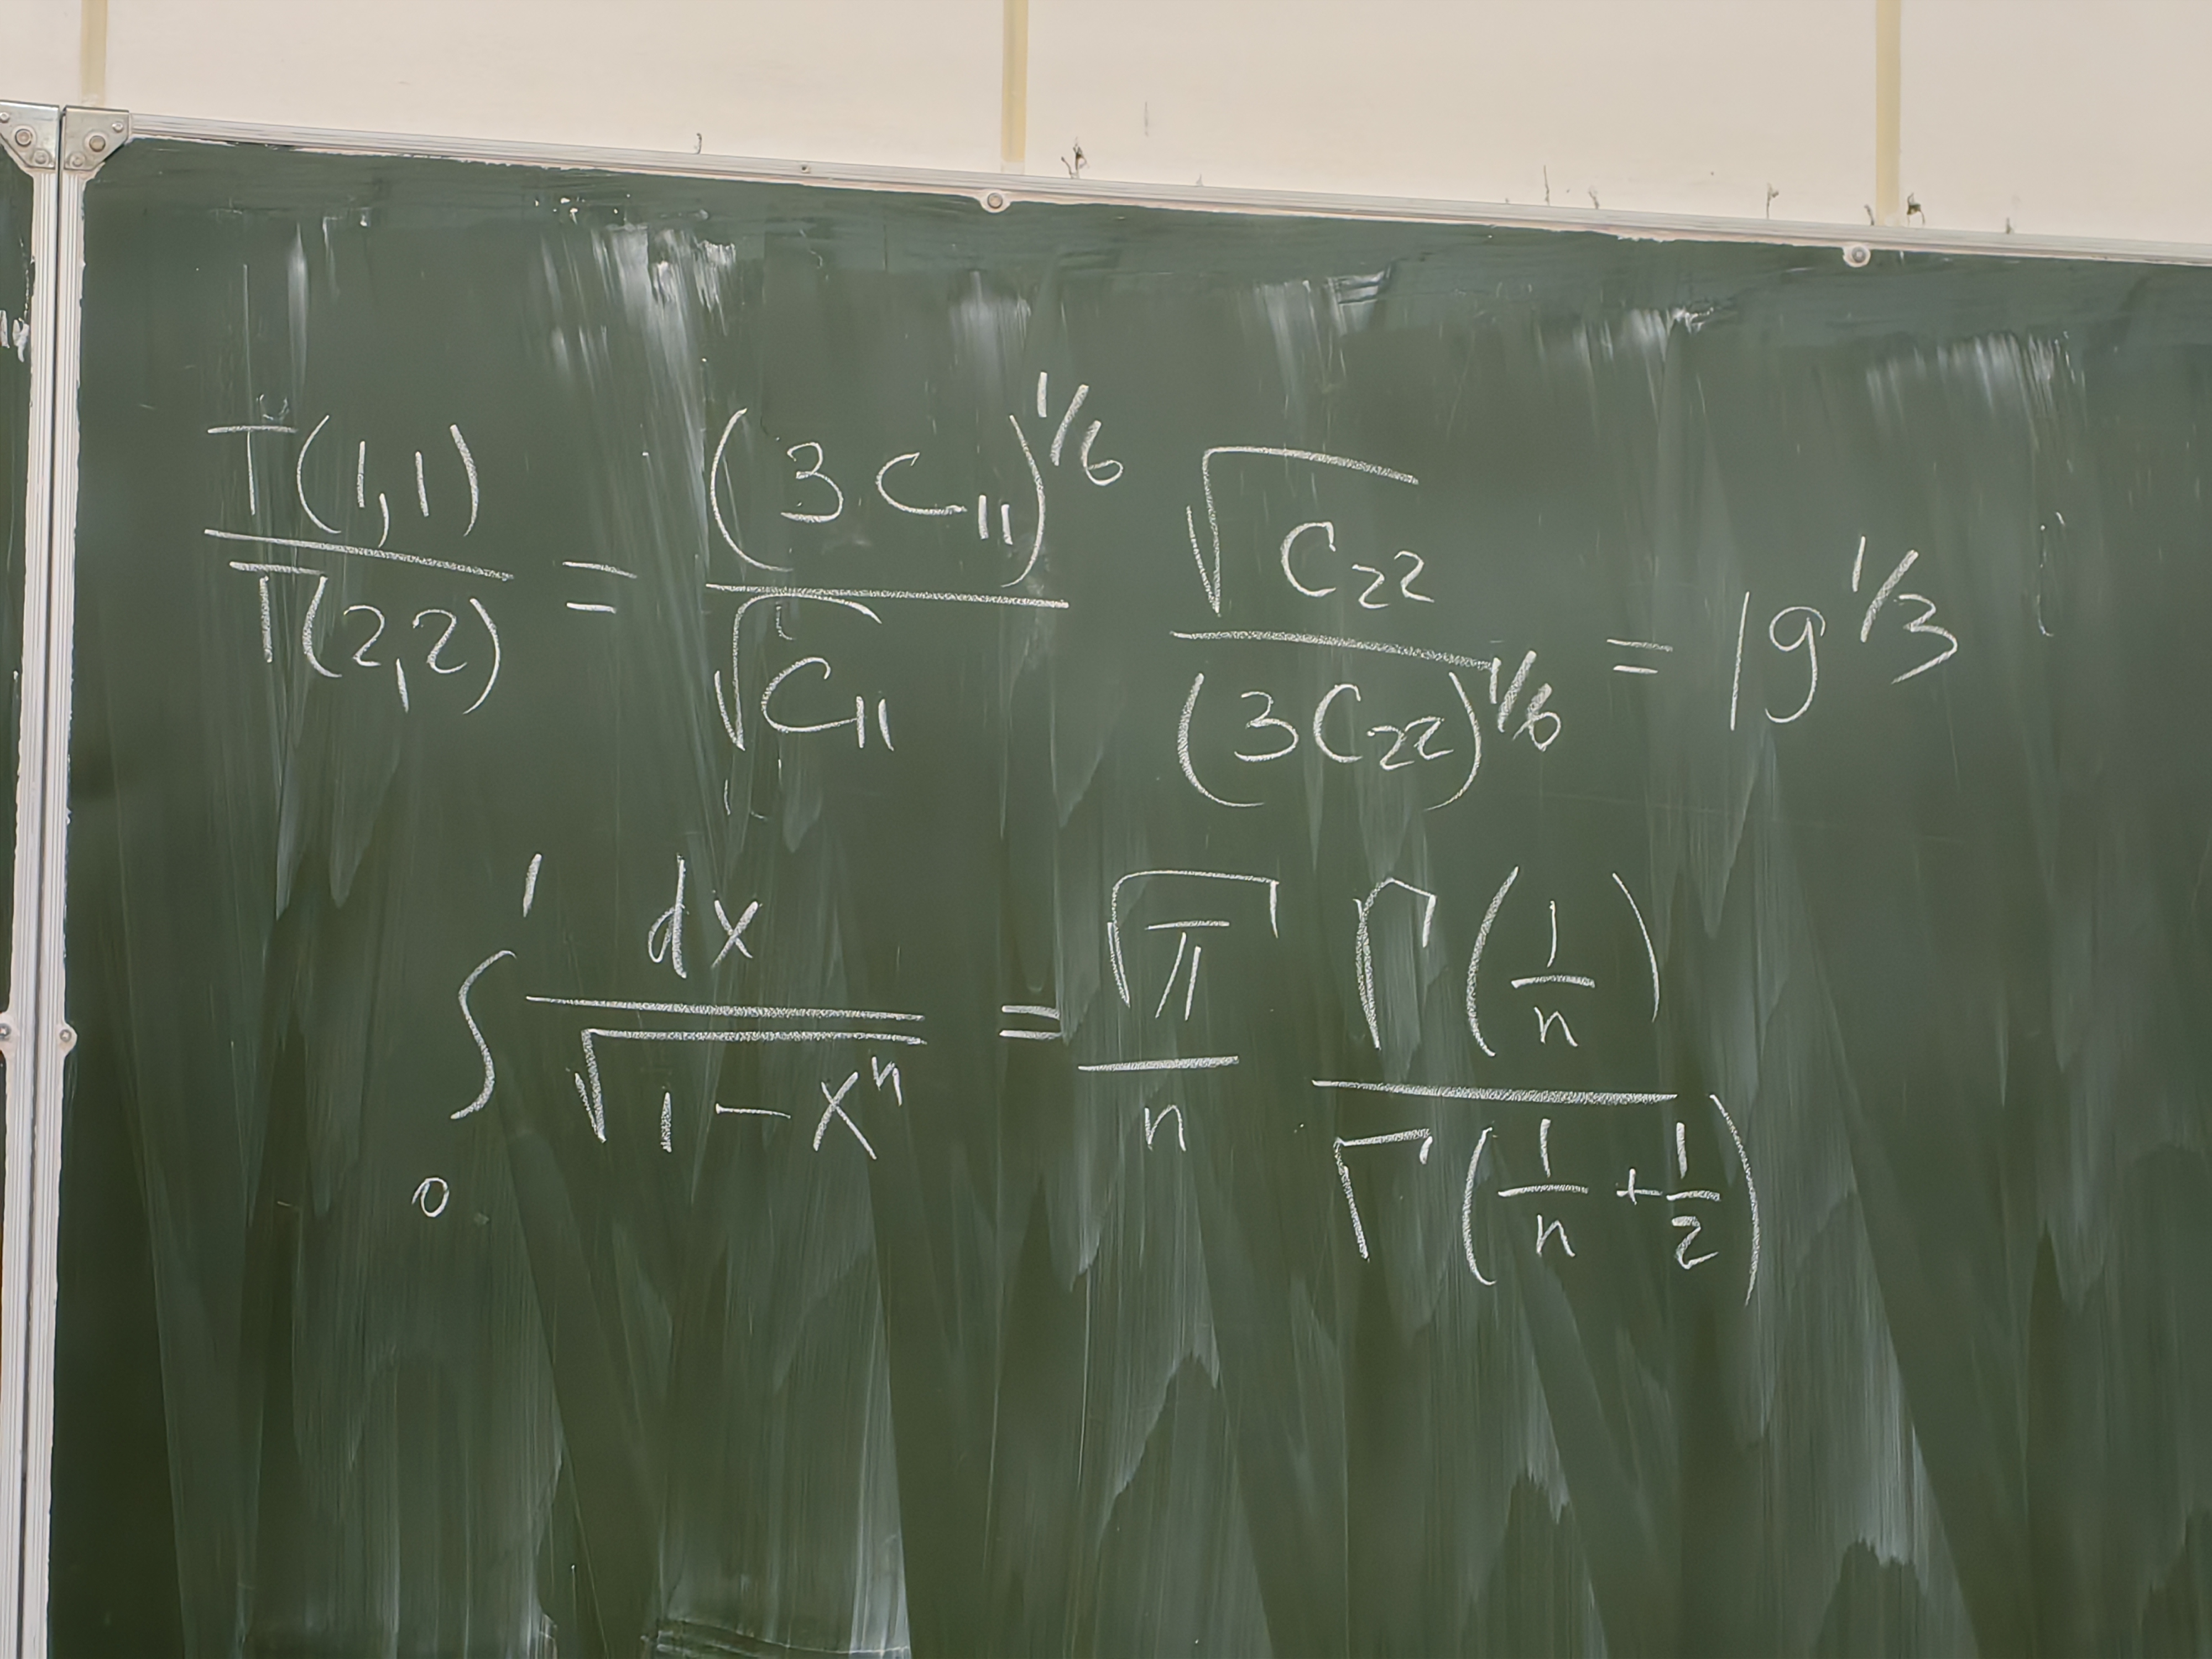 T(1,1)/T(2,2) = (3C₁₁)^1/6/√C₁₁ √C₂₂/(3C₂₂)^1/6 = 19^1/3
∫₀¹ dx/√(1-xⁿ) = √π/n Γ(1/n)/Γ(1/n + 1/2)